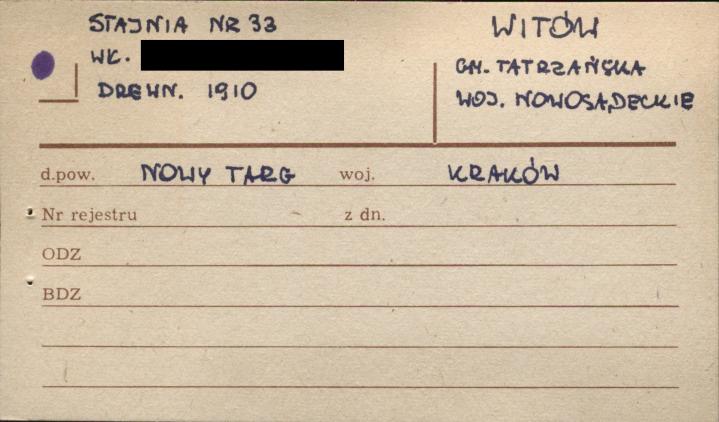 STAJNIA NR 33
WŁ.
DREWN. 1910
WITÓW
GM. TATRZAŃSKA
WOJ. NOWOSĄDECKIE
d.pow. NOWY TARG woj. KRAKÓW
Nr rejestru z dn.
ODZ
BDZ